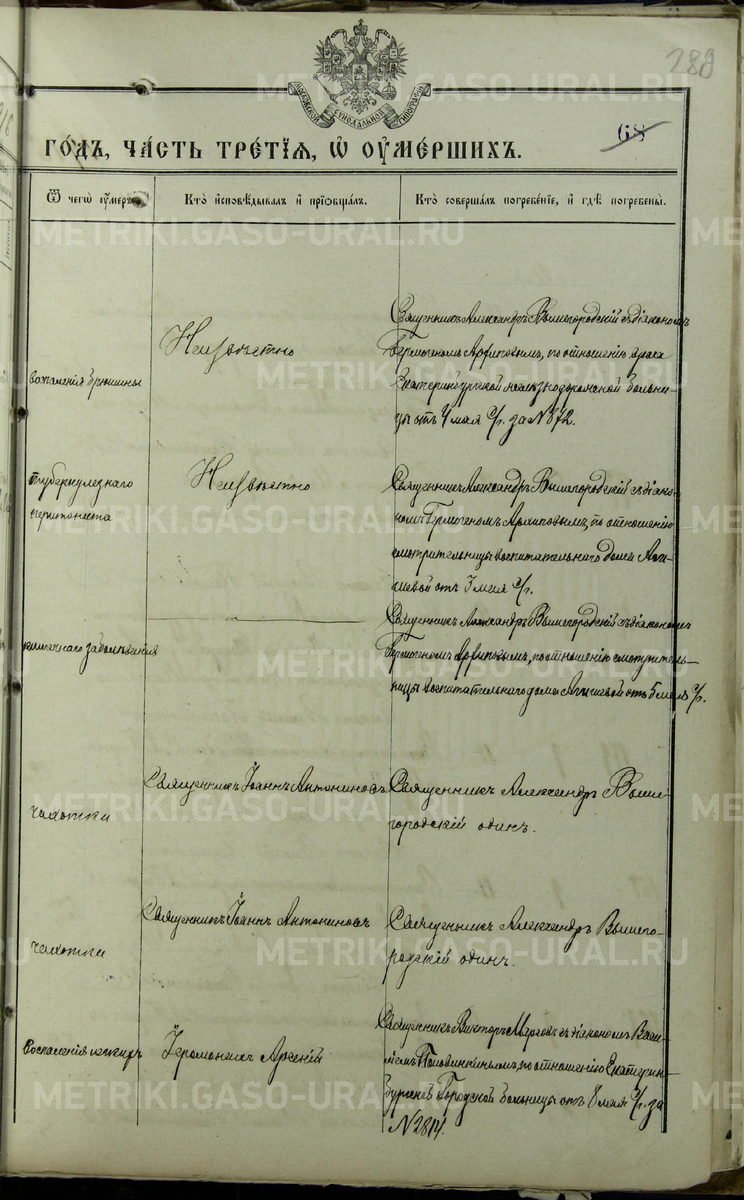 288
68
МОСКОВСКОЙ СѴНОДАЛЬНОЙ ТИПОГРАФІИ
ГОДЪ, ЧАСТЬ ТРЕТІѦ, Ѡ ОУМЕРШИХЪ.
Ѿ чегѡ оумеръ.
Кто исповѣдывалъ и прїобщалъ.
Кто совершалъ погребенїе, и гдѣ погребены.
воспаленія брюшины
Неизвѣстно
Священникъ Александръ Вышегородскій съ діакономъ
Гермогеномъ Архиповымъ, по отношенію врача
Екатеринбургской желѣзнодорожной больни-
цы отъ 4 мая с/г. за № 872.
туберкулезнаго
перитонита
Неизвѣстно
Священникъ Александръ Вышегородскій съ діако-
номъ Гермогеномъ Архиповымъ, по отношенію
смотрительницы воспитательнаго дома Ага-
шевой отъ 3 мая с/г.
кишечнаго заболѣванія
Священникъ Александръ Вышегородскій съ діакономъ
Гермогеномъ Архиповымъ, по отношенію смотритель-
ницы воспитательнаго дома отъ 5 мая с/г.
чахотки
Священникъ Іоаннъ Антониновъ
Священникъ Александръ Выше-
городскій одинъ.
чахотки
Священникъ Іоаннъ Антониновъ
Священникъ Александръ Вышего-
родскій одинъ.
Воспаленія легкихъ
Іеромонахъ Арсеній
Священникъ Викторъ съ діакономъ
Половинкинымъ, по отношенію Екатерин-
бургской Городской больницы отъ 8 мая с/г. за
№ 2814.
METRIKI.GASO-URAL.RU